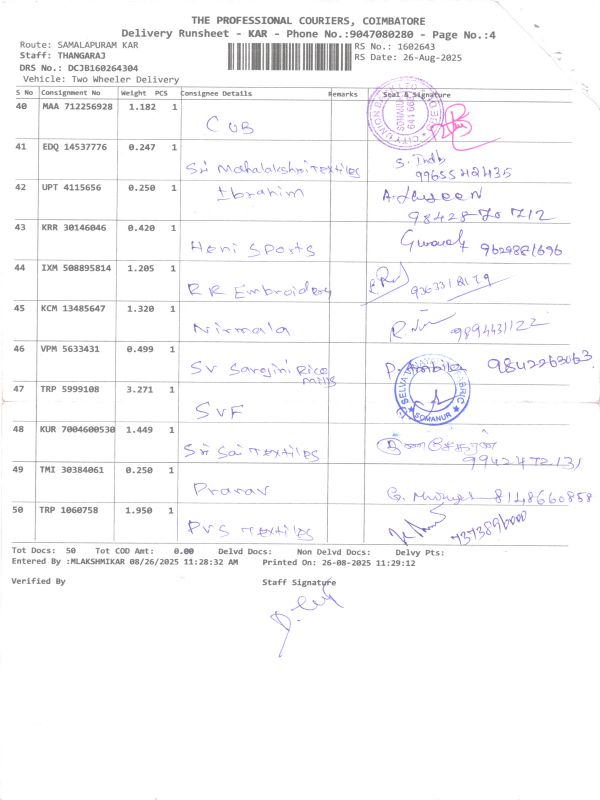 THE PROFESSIONAL COURIERS, COIMBATORE
Delivery Runsheet - KAR - Phone No.:9047080280 - Page No.:4
Route: SAMALAPURAM KAR
RS No.: 1602643
Staff: THANGARAJ
RS Date: 26-Aug-2025
DRS No.: DCJB160264304
Vehicle: Two Wheeler Delivery
S No Consignment No Weight PCS Consignee Details Remarks Seal & Signature
40 MAA 712256928 1.182 1 CUB
CITY UNION BANK LTD
SOMANUR
41 EDQ 14537776 0.247 1 Sri Mahalakshmi Textiles S. Indh
9965542435
42 UPT 4115656 0.250 1 Ibrahim
98428 70 712
43 KRR 30146046 0.420 1 Heni Sports 9629881696
44 IXM 508895814 1.205 1 RR Embroidery
45 KCM 13485647 1.320 1 Nirmala 9894431122
46 VPM 5633431 0.499 1 SV Sarojini Rice mills P. Ambika 9842263063
47 TRP 5999108 3.271 1 SVF
SELVA
SOMANUR
48 KUR 7004600530 1.449 1 Sri Sai Textiles
9942472131
49 TMI 30384061 0.250 1 Pranav G. Murugesh 8148660858
50 TRP 1060758 1.950 1 PVS Textiles 7373896000
Tot Docs: 50 Tot COD Amt: 0.00 Delvd Docs: Non Delvd Docs: Delvy Pts:
Entered By :MLAKSHMIKAR 08/26/2025 11:28:32 AM Printed On: 26-08-2025 11:29:12
Verified By Staff Signature